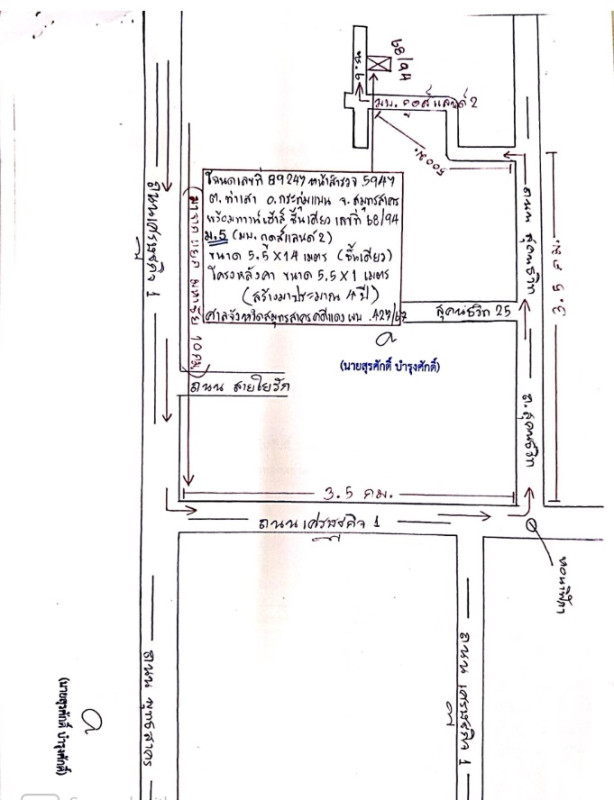 68/94
ซ. 6
มบ. กูดส์แลนด์ 2
500 ม.
โฉนดเลขที่ 89247 หน้าสำรวจ 5947
ต. ท่าเสา อ. กระทุ่มแบน จ. สมุทรสาคร
พร้อมทาวน์เฮ้าส์ ชั้นเดียว เลขที่ 68/94
ม.5 (มบ. กูดส์แลนด์ 2)
ขนาด 5.5 X 14 เมตร (ชั้นเดียว)
โครงหลังคา ขนาด 5.5 X 1 เมตร
(สร้างมาประมาณ 4 ปี)
ศาลจังหวัดสมุทรสาคร คดีแดง ผบ. 427/67
มาจากแยก มหาชัย 10 กม.
ถนนเศรษฐกิจ 1
ถนน สุคนธวิท
3.5 กม.
สุคนธวิท 25
ถ. สุคนธวิท
(นายสุรศักดิ์ บำรุงศักดิ์)
ถนน สายใยรัก
3.5 กม.
ถนนเศรษฐกิจ 1
หอนาฬิกา
ถนน พุทธสาคร
ถนน เศรษฐกิจ 1
(นายสุรศักดิ์ บำรุงศักดิ์)